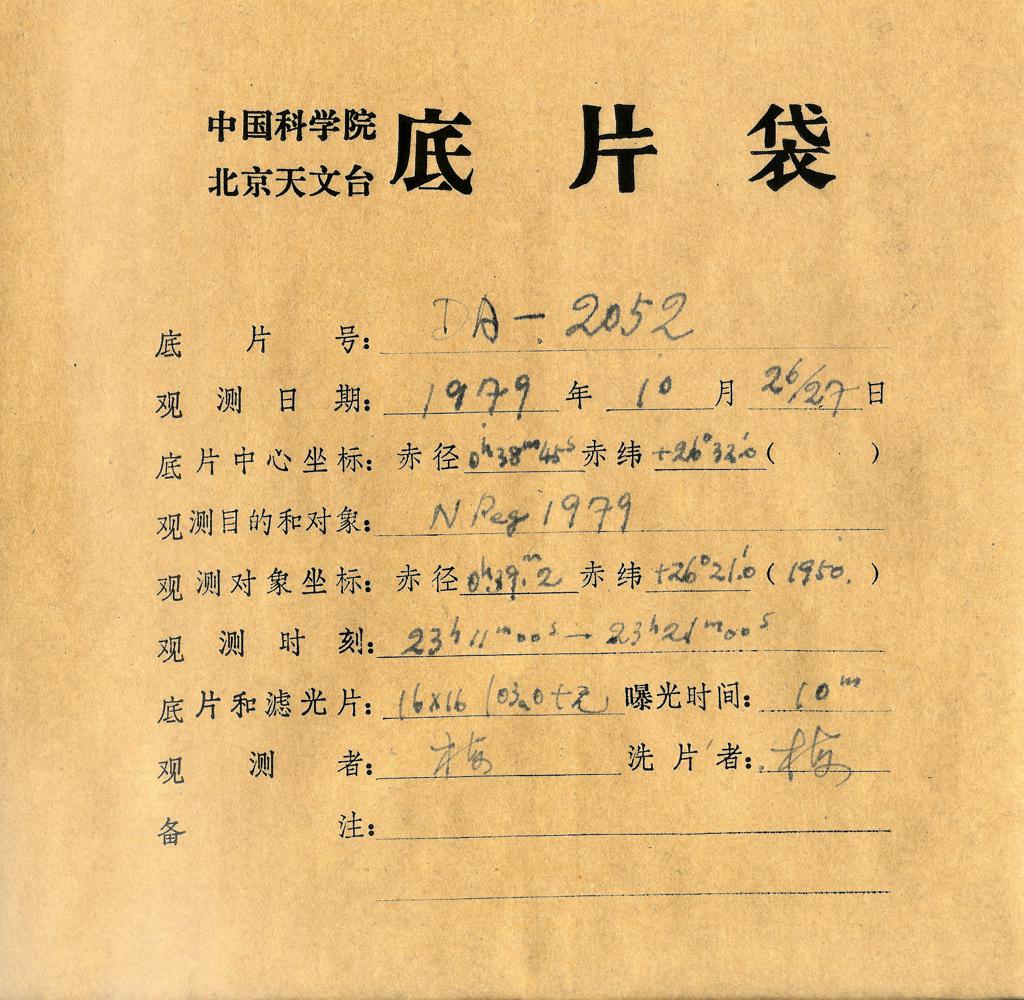 中国科学院
北京天文台
底片袋
底片号: DA-2052
观测日期: 1979 年 10 月 26/27 日
底片中心坐标: 赤径 0h38m45s 赤纬 +26°32'.0 ( )
观测目的和对象: N Peg 1979
观测对象坐标: 赤径 0h39m.2 赤纬 +26°21'.0 (1950.)
观测时刻: 23h11m00s - 23h21m00s
底片和滤光片: 16x16 103aO+无 曝光时间: 10m
观测者: 梅 洗片者: 梅
备注: